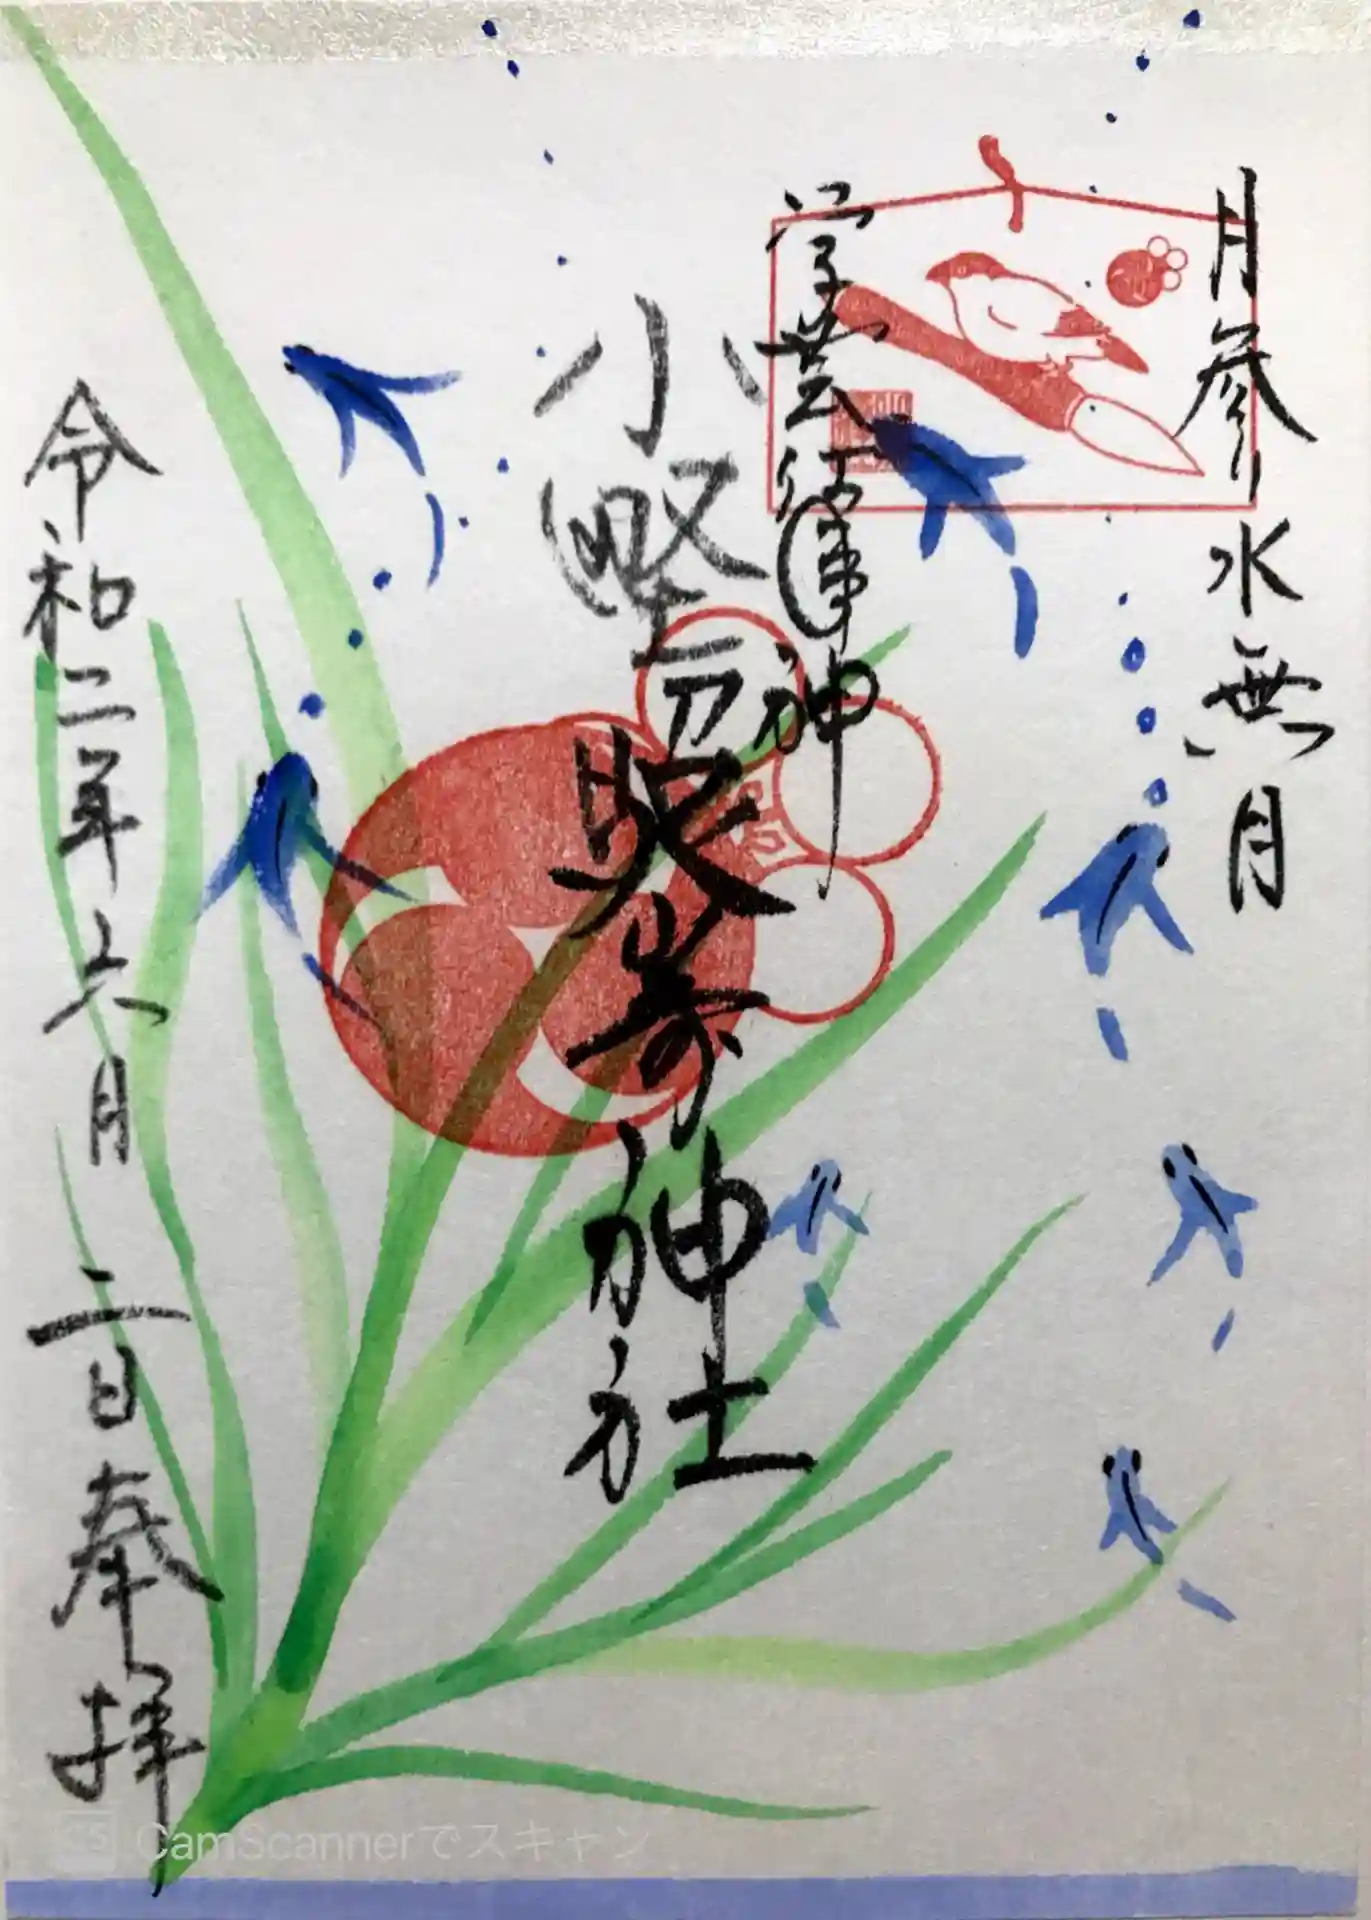 月参り 水無月
学芸
神
小野照崎神社
令和二年六月 二日奉拝
CS CamScannerでスキャン